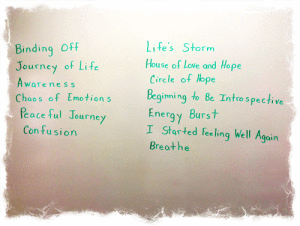 Binding Off
Journey of Life
Awareness
Chaos of Emotions
Peaceful Journey
Confusion
Life's Storm
House of Love and Hope
Circle of Hope
Beginning to Be Introspective
Energy Burst
I Started Feeling Well Again
Breathe